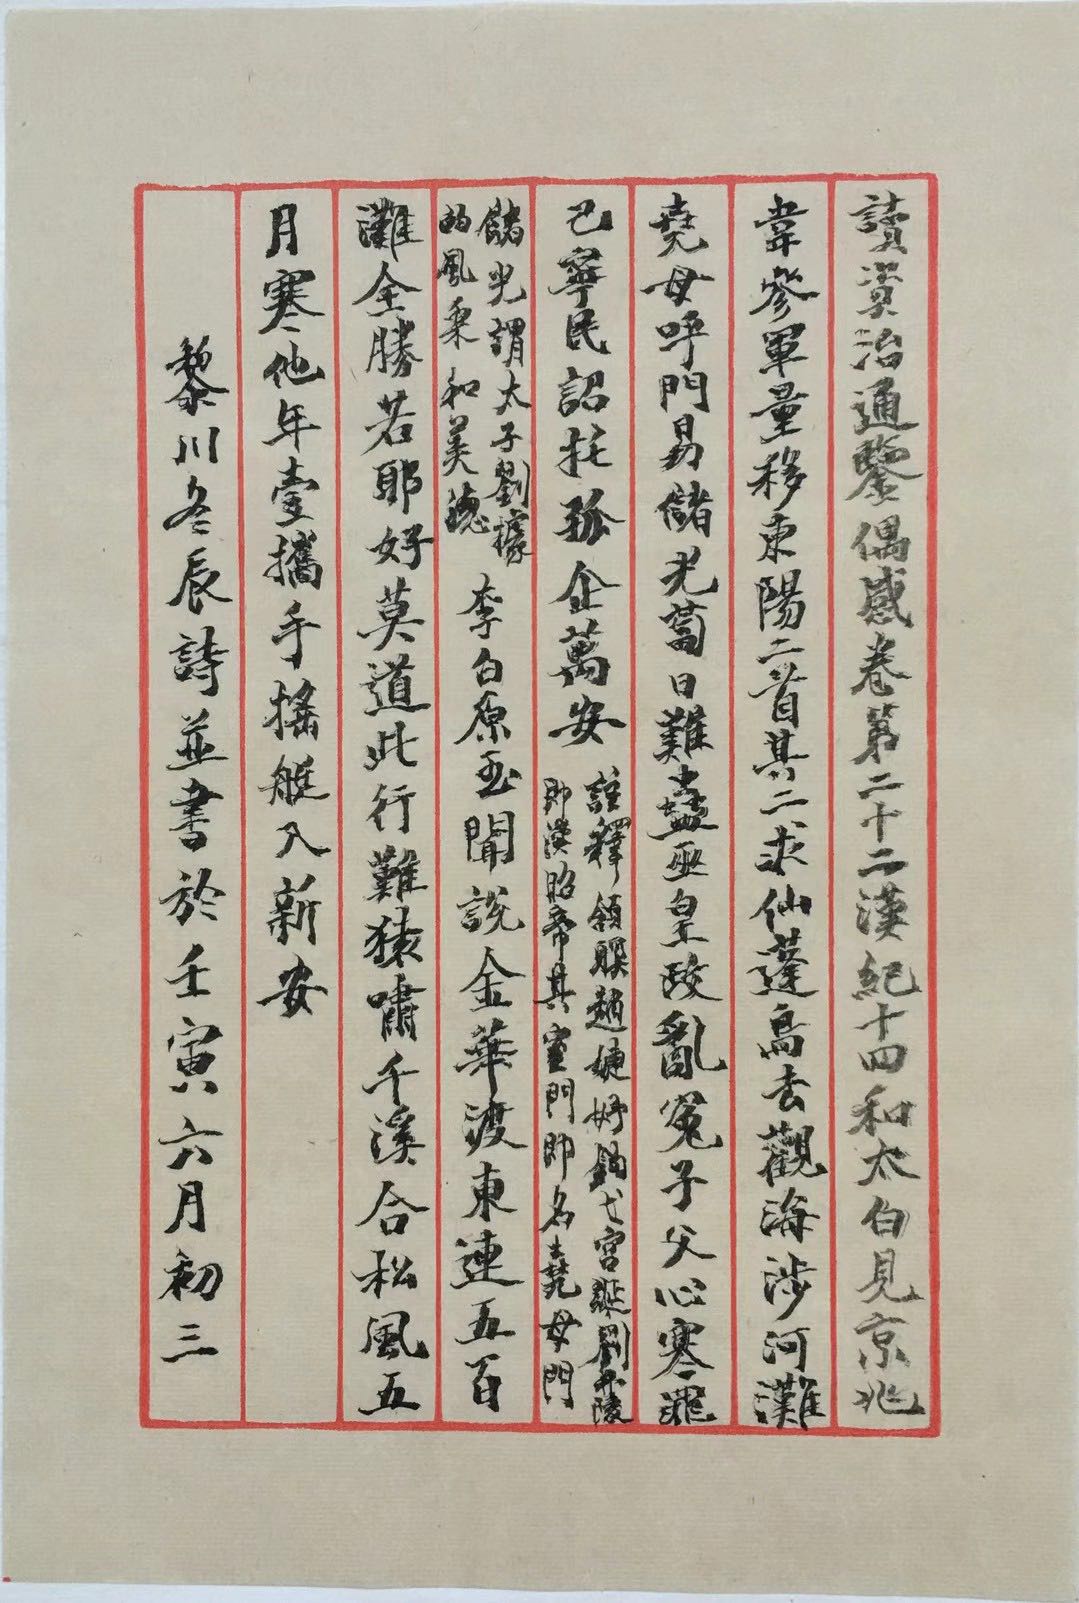 讀資治通鑒偶感卷第二十二漢紀十四和太白見京兆
韋參軍量移東陽二首其二求仙蓬島去觀海涉河灘
堯母呼門易儲光蔔日難蠱巫皇政亂冤子父心寒罪
己寧民詔托孤企萬安
註釋頷聯趙婕妤鉤弋宮誕劉弗陵
即漢昭帝其宮門即名堯母門
儲光謂太子劉據
的風采和美德
李白原玉聞說金華渡東連五百
灘全勝若耶好莫道此行難猿嘯千溪合松風五
月寒他年壹攜手搖艇入新安
黎川冬辰詩並書於壬寅六月初三